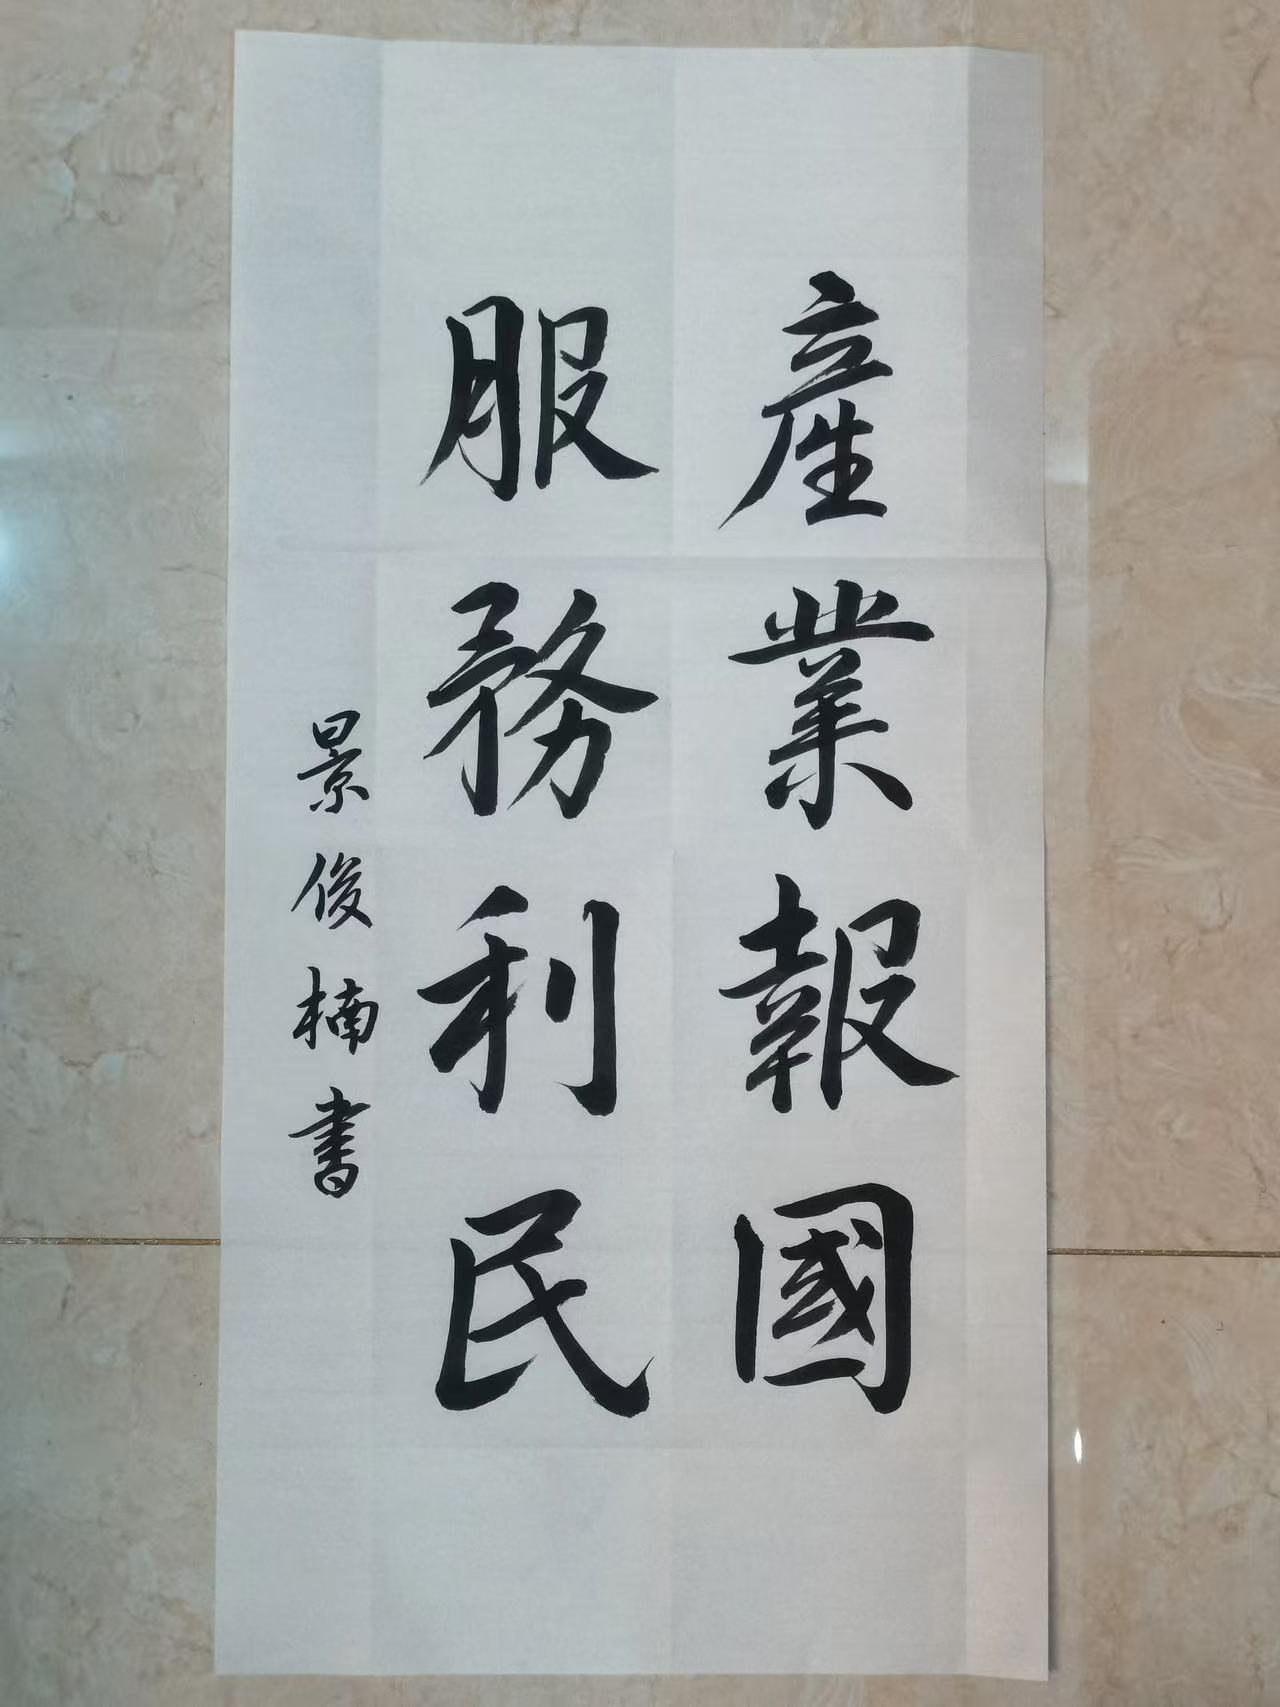 產業報國
服務利民
景俊楠書